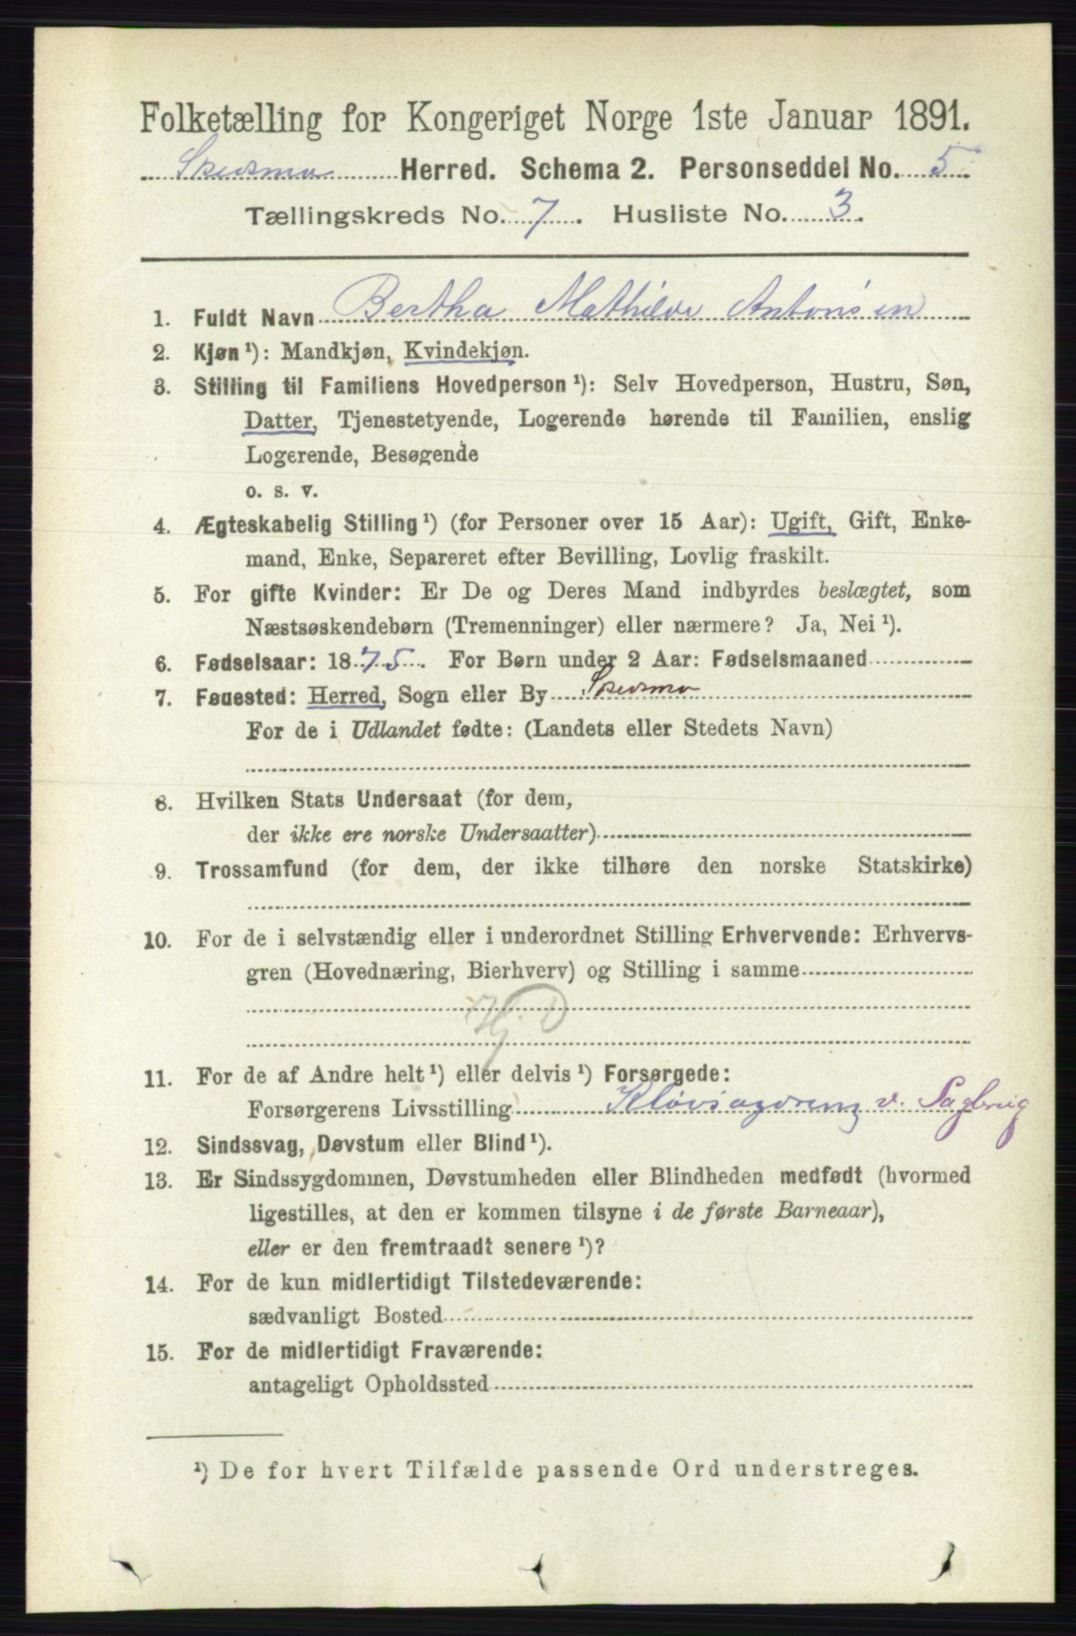 Folketælling for Kongeriget Norge 1ste Januar 1891.
Skedsmo Herred. Schema 2. Personseddel No. 5.
Tællingskreds No. 7. Husliste No. 3.
1. Fuldt Navn Bertha Mathilde Antonsen
2. Kjøn¹): Mandkjøn, Kvindekjøn.
3. Stilling til Familiens Hovedperson¹): Selv Hovedperson, Hustru, Søn,
Datter, Tjenestetyende, Logerende hørende til Familien, enslig
Logerende, Besøgende
o. s. v.
4. Ægteskabelig Stilling¹) (for Personer over 15 Aar): Ugift, Gift, Enke-
mand, Enke, Separeret efter Bevilling, Lovlig fraskilt.
5. For gifte Kvinder: Er De og Deres Mand indbyrdes beslægtet, som
Næstsøskendebørn (Tremenninger) eller nærmere? Ja, Nei¹).
6. Fødselsaar: 1875. For Børn under 2 Aar: Fødselsmaaned
7. Fødested: Herred, Sogn eller By Skedsmo
For de i Udlandet fødte: (Landets eller Stedets Navn)
8. Hvilken Stats Undersaat (for dem,
der ikke ere norske Undersaatter)
9. Trossamfund (for dem, der ikke tilhøre den norske Statskirke)
10. For de i selvstændig eller i underordnet Stilling Erhvervende: Erhvervs-
gren (Hovednæring, Bierhverv) og Stilling i samme
Hj. D
11. For de af Andre helt¹) eller delvis¹) Forsørgede:
Forsørgerens Livsstilling Kløvsagdreng v. Sagbrug
12. Sindssvag, Døvstum eller Blind¹).
13. Er Sindssygdommen, Døvstumheden eller Blindheden medfødt (hvormed
ligestilles, at den er kommen tilsyne i de første Barneaar),
eller er den fremtraadt senere¹)?
14. For de kun midlertidigt Tilstedeværende:
sædvanligt Bosted
15. For de midlertidigt Fraværende:
antageligt Opholdssted
¹) De for hvert Tilfælde passende Ord understreges.